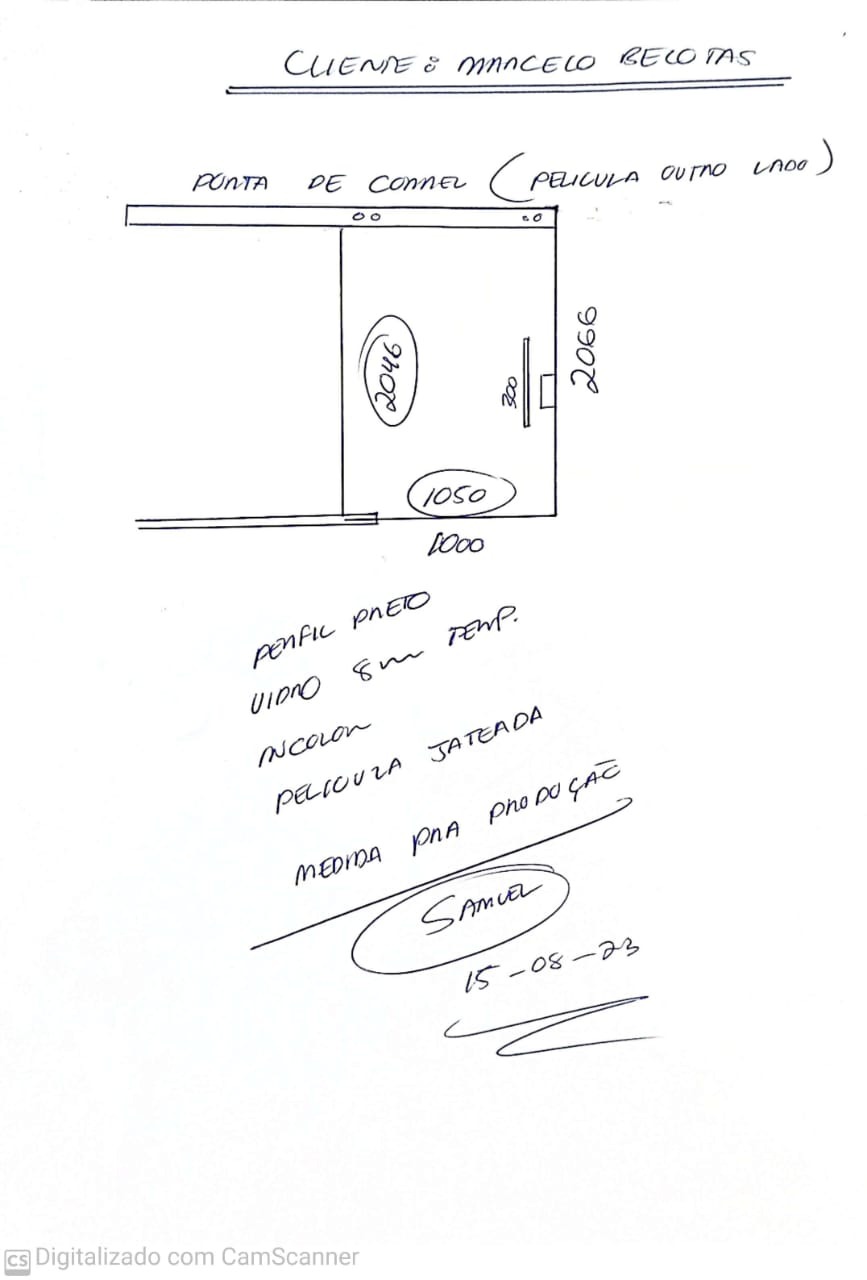 CLIENTE: MARCELO BELOTAS
PORTA DE CORRER (PELICULA OUTRO LADO)
2046
300
2066
1050
1000
PERFIL PRETO
VIDRO 8mm TEMP.
INCOLOR
PELICULA JATEADA
MEDIDA PRA PRODUÇÃO
SAMUEL
15-08-23
CS Digitalizado com CamScanner